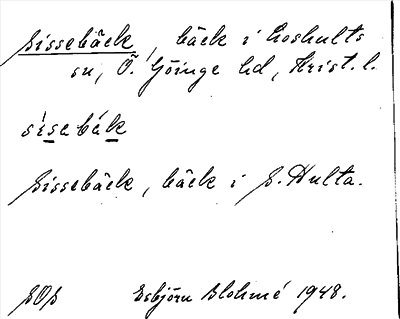 Sissebäck, bäck i Loshults
sn, Ö. Göinge hd, Krist. l.
sisebäk
Sissebäck, bäck i S. Hulta.
SOS Esbjörn Blohmé 1948.